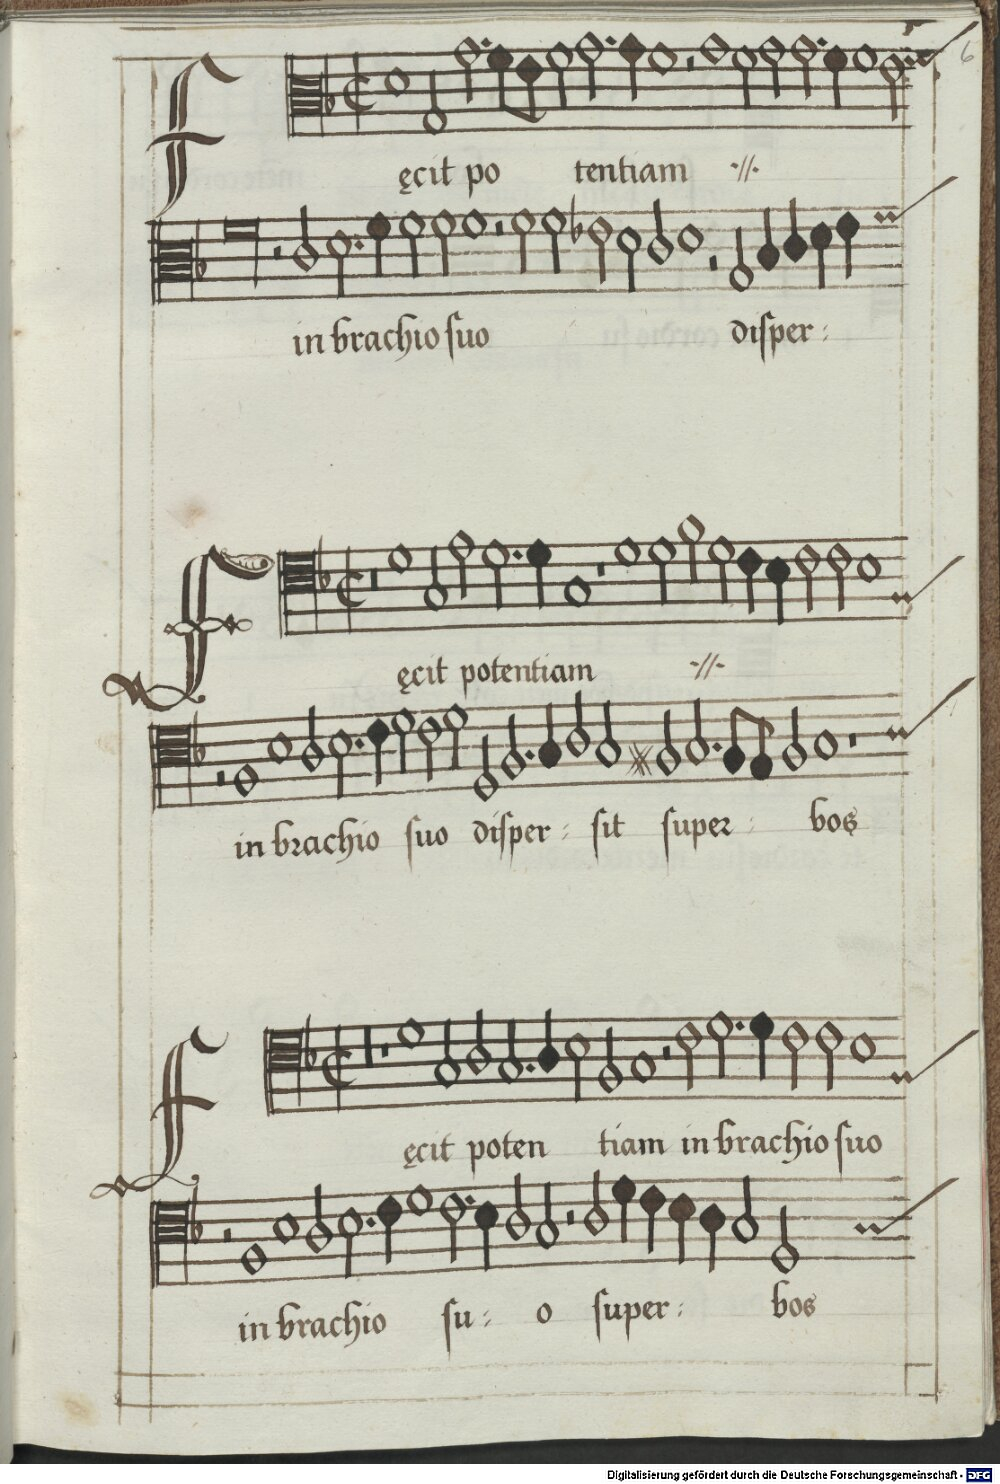 6
Fęcit po tentiam ·//·
in brachio ſuo diſper:
Fęcit potentiam ·//·
in brachio ſuo diſper: ſit ſuper: bos
Fęcit poten tiam in brachio ſuo
in brachio ſu: o ſuper: bos
Digitalisierung gefördert durch die Deutsche Forschungsgemeinschaft - DFG